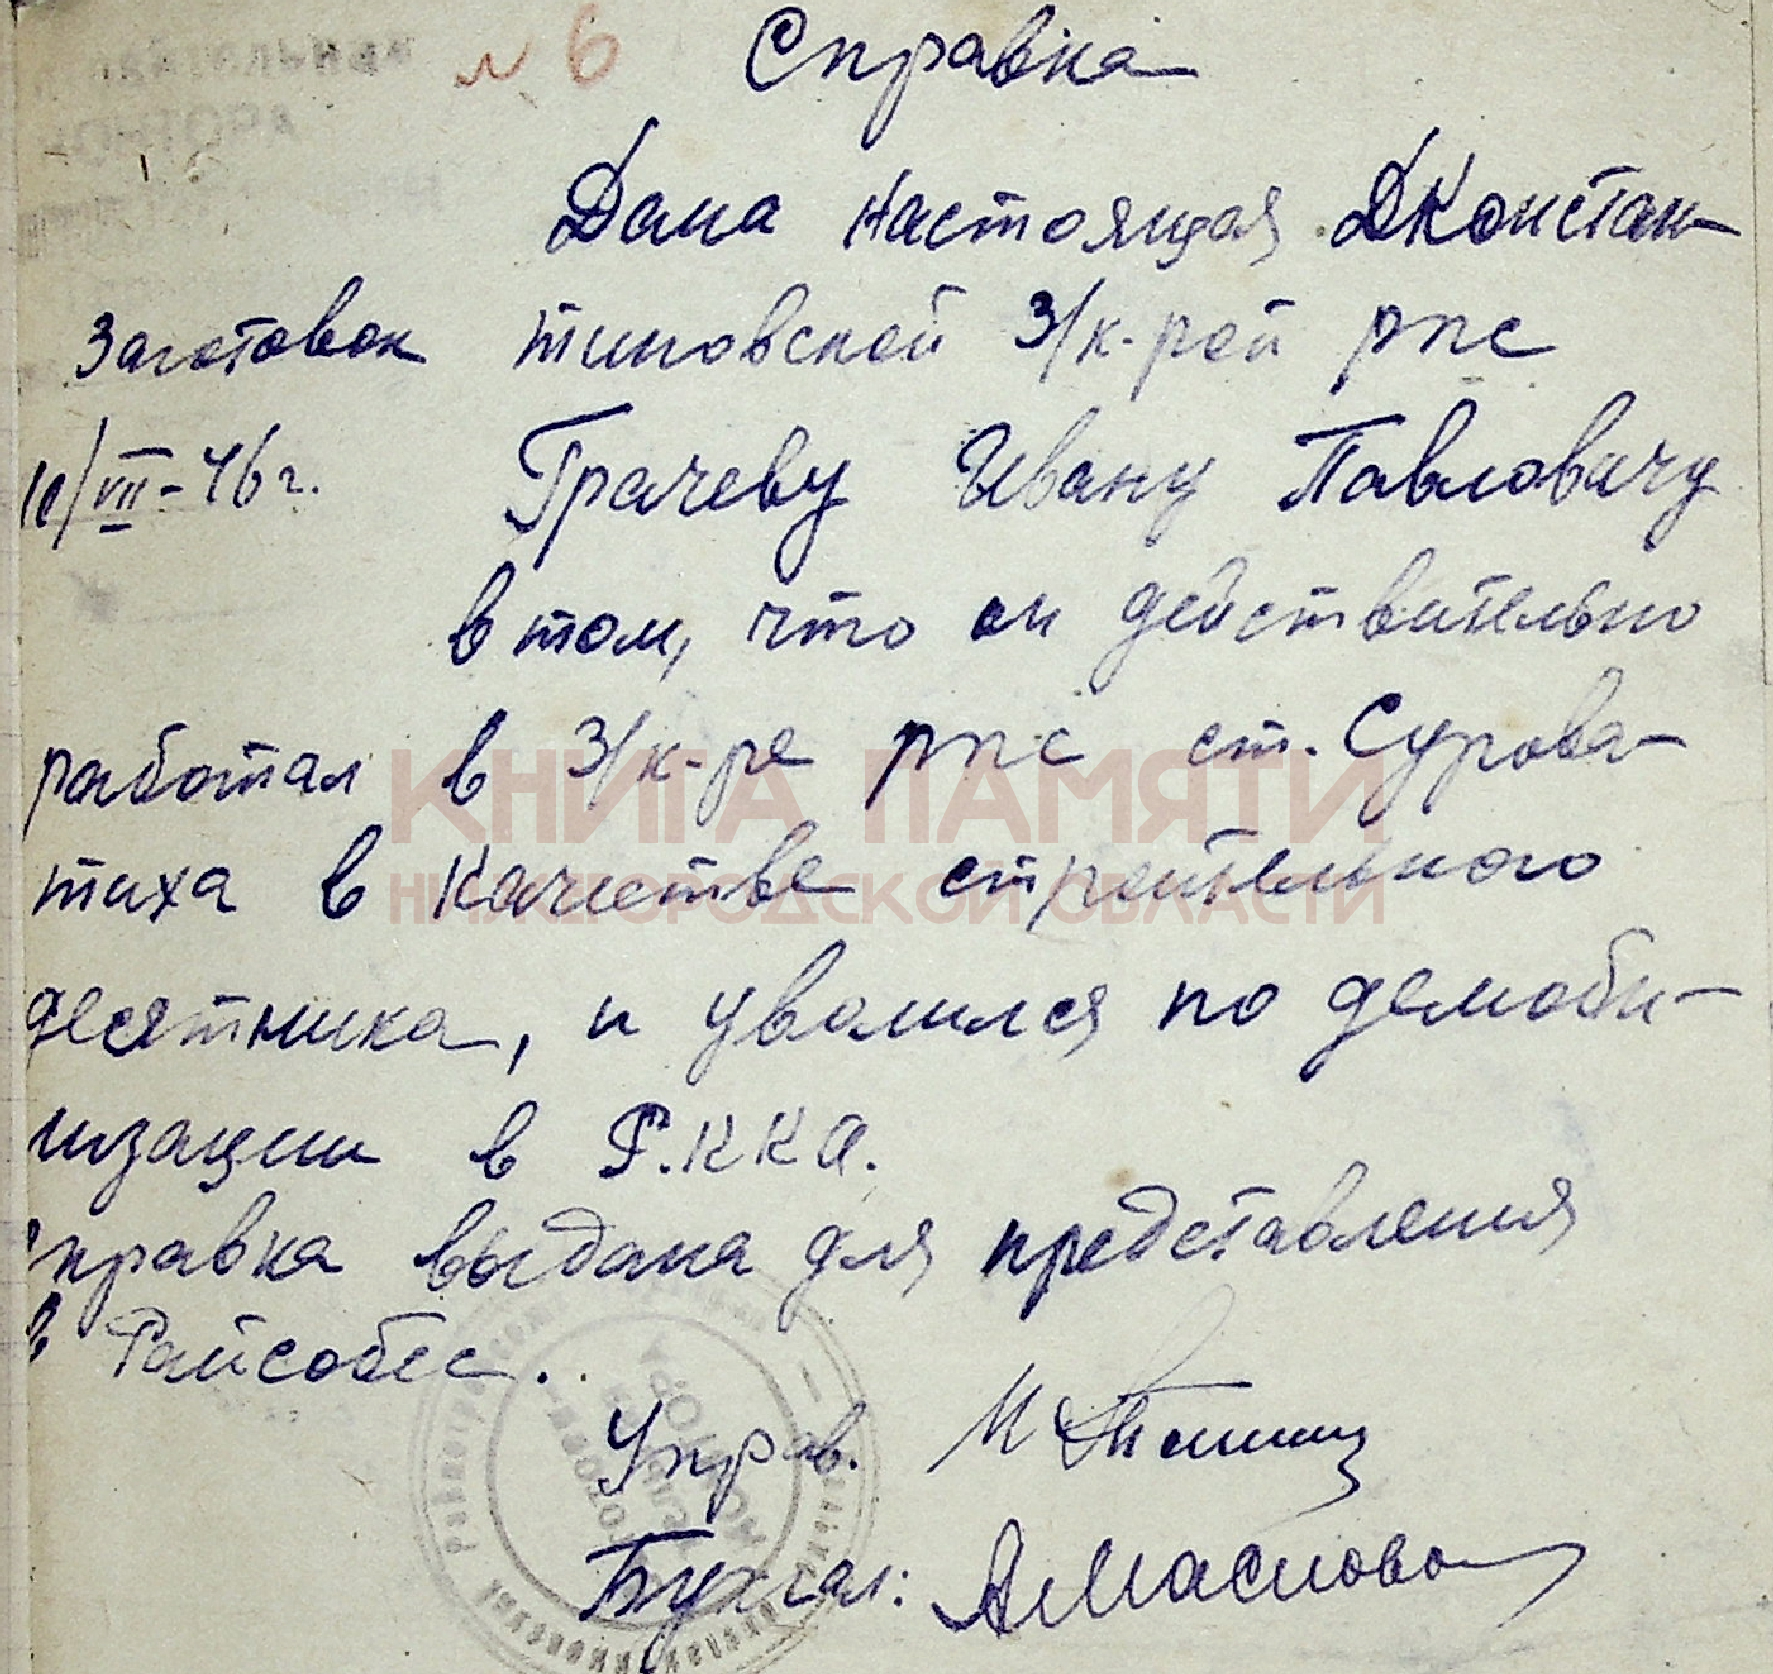 № 6 Справка
Дана настоящая ДКонстан-
Заготовок тиновской з/к-рой рпс
10/VII-46 г. Грачеву Ивану Павловичу
в том, что он действительно
работал в з/к-ре рпс ст. Сурова-
КНИГА ПАМЯТИ
тиха в качестве строительного
НИЖЕГОРОДСКОЙ ОБЛАСТИ
десятника, и уволился по демоби-
лизации в Р.ККА.
справка выдана для представления
в Райсобес.
Управ.
Бухгал: АМаслова